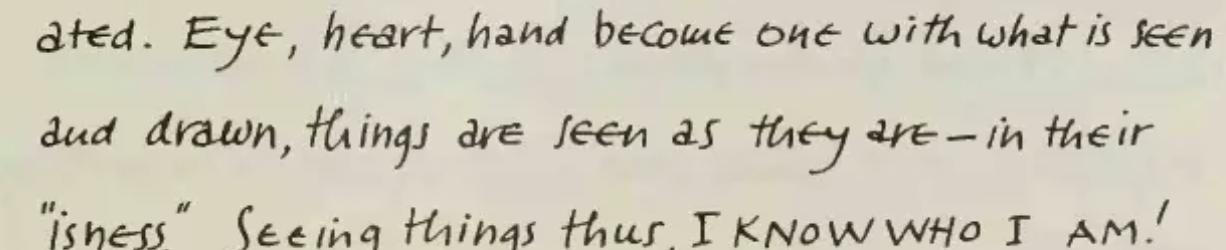 ated. Eye, heart, hand become one with what is seen
and drawn, things are seen as they are – in their
"isness" Seeing things thus, I KNOW WHO I AM!